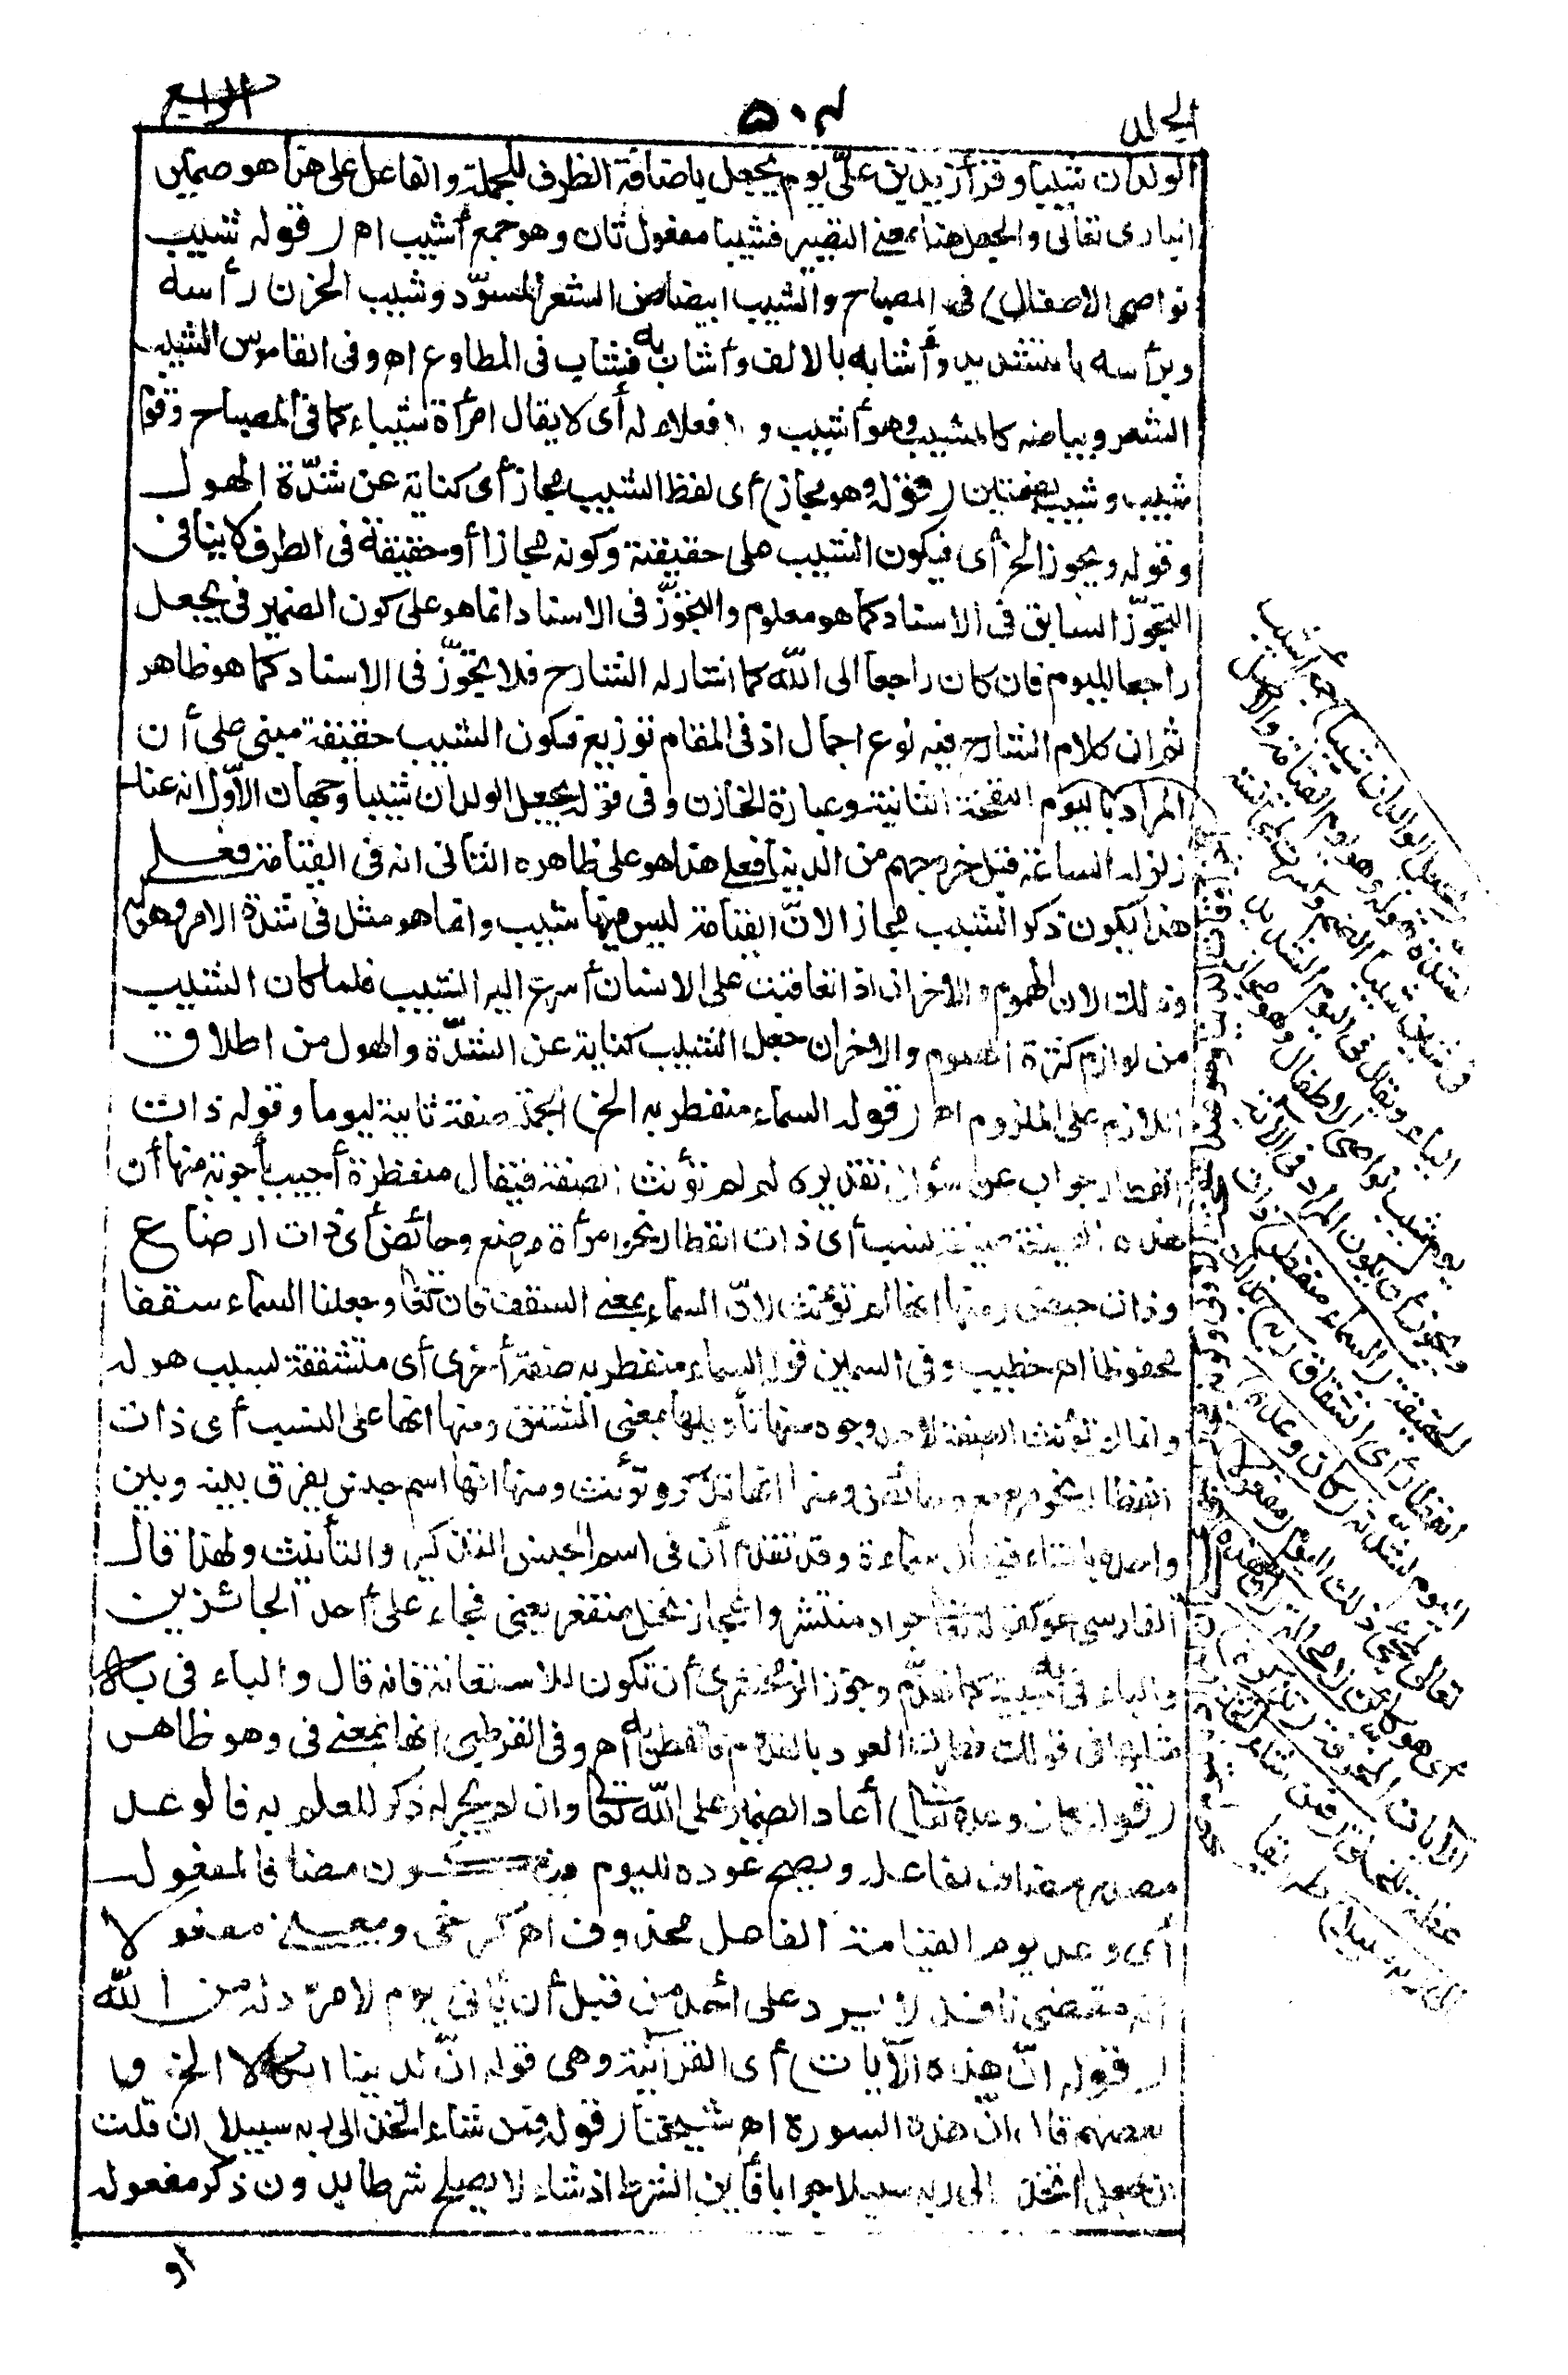 الجلد
٥٠٤
الرابع
الولدان شيبا وقرأ زيد بن علىّ يوم يجعل باضافة الظرف للجملة والفاعل على هذا هو ضمير
البارى تعالى والجعل هنا بمعنى التصيير فشيبا مفعول ثان وهو جمع أشيب اه (قوله تشيب
نواصى الاطفال) فى المصباح والشيب ابيضاض الشعر المسودّ وشيب الحزن رأسه
وبرأسه بالتشديد وأشابه بالالف وأشاب به فشاب فى المطاوع اه وفى القاموس الشيب
الشعر وبياضه كالمشيب وهو أشيب ولا فعلاء له أى لا يقال امرأة شيباء كما فى المصباح وقوم
شيب وشيب بضمتين (قوله وهو مجاز) أى لفظ الشيب مجاز أى كناية عن شدّة الهول
وقوله ويجوز الخ أى فيكون الشيب على حقيقته وكونه مجازا أو حقيقة فى الطرف لا ينافى
التجوّز السابق فى الاسناد كما هو معلوم والتجوّز فى الاسناد انما هو على كون الضمير فى يجعل
راجعا لليوم فان كان راجعا الى اللّه كما اشار له الشارح فلا تجوّز فى الاسناد كما هو ظاهر
ثم ان كلام الشارح فيه نوع اجمال اذ فى المقام توزيع فكون الشيب حقيقة مبنى على أن
المراد باليوم النفخة الثانية وعبارة الخازن وفى قوله يجعل الولدان شيبا وجهان الأوّل انه عند
زلزلة الساعة قبل خروجهم من الدنيا فعلى هذا هو على ظاهره الثانى انه فى القيامة فعلى
هذا يكون ذكر الشيب مجازا لانّ القيامة ليس فيها شيب وانما هو مثل فى شدة الامر وهوله
وذلك لان الهموم والاحزان اذا تعاقبت على الانسان أسرع اليه الشيب فلما كان الشيب
من لوازم كثرة الهموم والاحزان جعل الشيب كناية عن الشدّة والهول من اطلاق
اللازم على الملزوم اه (قوله السماء منفطر به الخ) الجملة صفة ثانية ليوما وقوله ذات
انفطار جواب عن سؤال تقديره لم لم تؤنث الصفة فيقال منفطرة أجيب بأجوبة منها أن
هذه الصيغة صيغة نسب أى ذات انفطار نحو امرأة مرضع وحائض أى ذات ارضاع
وذات حيض ومنها انها لم تؤنث لانّ السماء بمعنى السقف قال تعالى وجعلنا السماء سقفا
محفوظا اه خطيب وفى السمين قوله السماء منفطر به صفة أخرى أى متشققة بسبب هوله
وانما لم تؤنث الصفة لأحد وجوه منها تأويلها بمعنى المشتق ومنها انها على النسب أى ذات
انفطار نحو مرضع وحائض ومنها انها تذكر وتؤنث ومنها انها اسم جنس يفرق بينه وبين
واحده بالتاء فيقال سماءة وقد تقدم أن فى اسم الجنس التذكير والتأنيث ولهذا قال
الفارسى هو كقوله تعالى جراد منتشر واعجاز نخل منقعر يعنى فجاء على أحد الجائزين
والباء فى به سببية كما تقدّم وجوز الزمخشرى أن تكون للاستعانة فانه قال والباء فى به
مثلها فى قولك فطرت العود بالقدوم فانفطر به اه وفى القرطبى انها بمعنى فى وهو ظاهر
(قوله كان وعده تعالى) أعاد الضمير على اللّه تعالى وان لم يجر له ذكر للعلم به فالوعد
مصدر مضاف لفاعله ويصح عوده لليوم فيكون مضافا لمفعوله
أى وعد يوم القيامة الفاعل محذوف اه كرخى ومعنى مفعولا
انه مقضى نافذ لا يرد على أحد من قبل أن يأتى يوم لا مردّ له من اللّه
(قوله انّ هذه الآيات) أى القرآنية وهى قوله انّ لدينا انكالا الخ وما
بعضهم قال انّ هذه السورة اه شيخنا (قوله فمن شاء اتخذ الى ربه سبيلا) ان قلت
ان جعل اتخذ الى ربه سبيلا جوابا فأين الشرط اذ شاء لا يصلح شرطا بدون ذكر مفعوله
او
(يجعل الولدان شيبا) جمع أشيب
لشدّة هوله وهو يوم القيامة والاصل
فى شين شيبا الضم وكسرت لمجانسة
الياء ويقال فى اليوم الشديد
يوم يشيب نواصى الاطفال وهو مجاز
ويجوز أن يكون المراد فى الآية
الحقيقة (السماء منفطر) ذات
انفطار أى انشقاق (به) بذلك
اليوم لشدّته (كان وعده)
تعالى بمجىء ذلك اليوم (مفعولا)
أى هو كائن لا محالة (ان هذه)
الآيات المخوّفة (تذكرة)
عظة للخلق (فمن شاء اتخذ
الى ربه سبيلا) طريقا